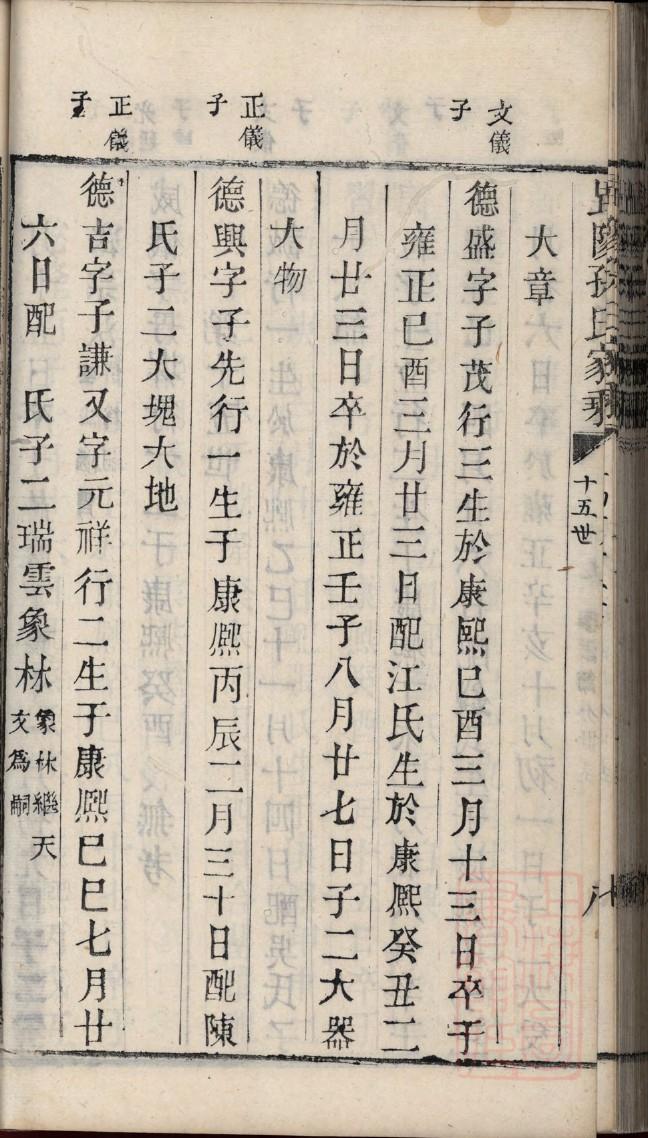 孫氏家乘
十五世
大章
文儀子
德盛字子茂行三生於康熙己酉三月十三日卒于
雍正己酉三月廿三日配江氏生於康熙癸丑二
月廿三日卒於雍正壬子八月廿七日子二大器
大物
正儀子
德興字子先行一生于康熙丙辰二月三十日配陳
氏子二大塊大地
正儀子
德吉字子謙又字元祥行二生于康熙己巳七月廿
六日配 氏子二瑞雲象林象林繼天
文為嗣